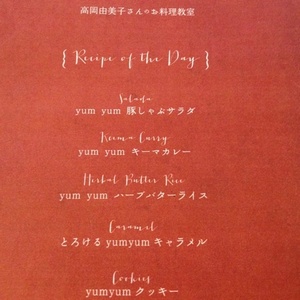 高岡由美子さんのお料理教室
{ Recipe of the Day }
Salada
yum yum 豚しゃぶサラダ
Keema Curry
yum yum キーマカレー
Herbal Butter Rice
yum yum ハーブバターライス
Caramel
とろけるyumyumキャラメル
Cookies
yumyumクッキー